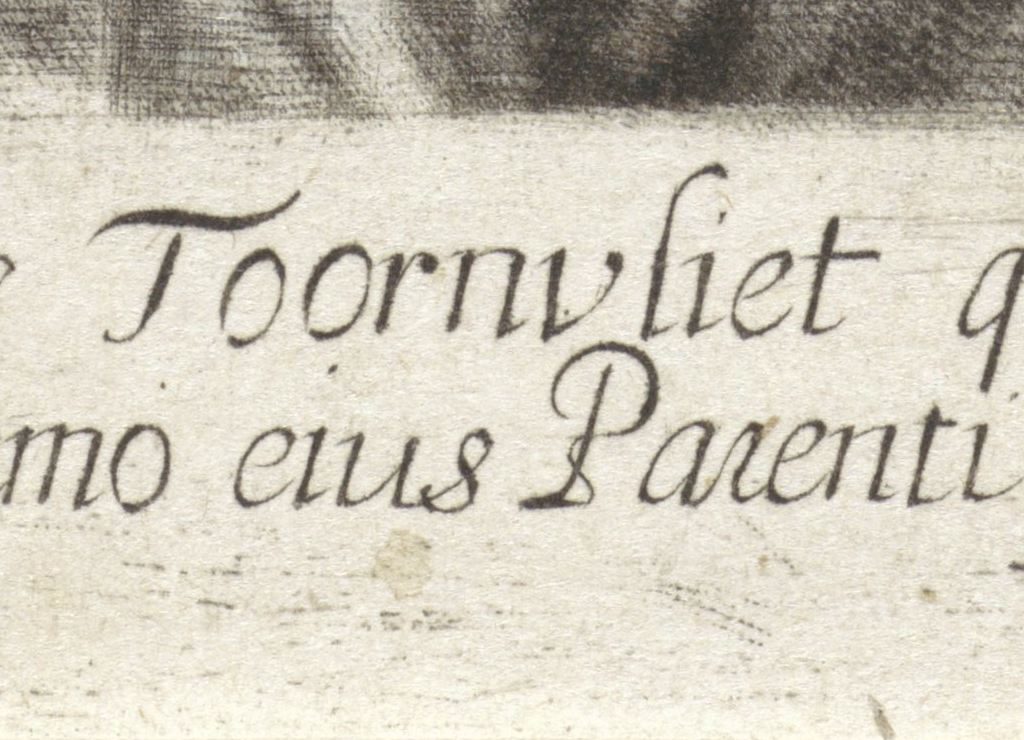 Toornvliet q
mo eius Parenti